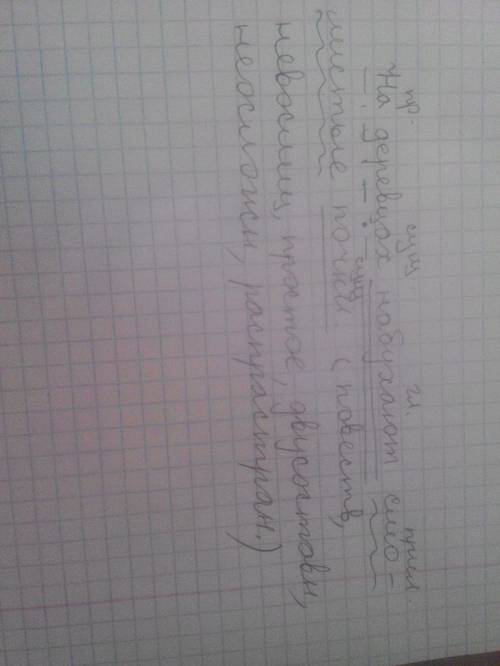 пр. сущ гл. прил.
На деревцах набухают смо-
сущ
листые почки. (повеств,
невосклиц, простое, двусоставн,
неосложн, распрастран.)